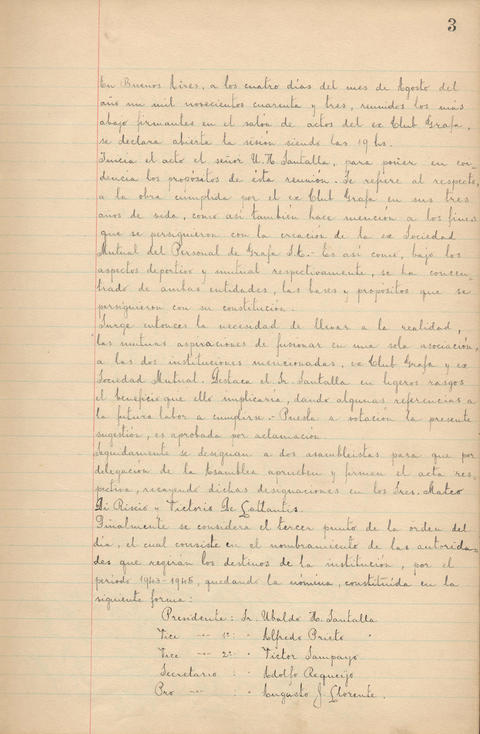 3
En Buenos Aires, a los cuatro días del mes de Agosto del
año un mil novecientos cuarenta y tres, reunidos los más
abajo firmantes en el salón de actos del ex Club Grafa,
se declara abierta la sesión siendo las 19 hs.
Inicia el acto el señor U. H. Santalla, para poner en con-
dencia los propósitos de ésta reunión. Se refiere al respecto,
a la obra cumplida por el ex Club Grafa en sus tres
años de vida, como así también hace mención a los fines
que se persiguieron con la creación de la ex Sociedad
Mutual del Personal de Grafa S.C.- Es así como, bajo los
aspectos deportivo y mutual respectivamente, se ha concen-
trado de ambas entidades, las bases y propósitos que se
persiguieron con su constitución.
Surge entonces la necesidad de llevar a la realidad,
las mutuas aspiraciones de fusionar en una sola asociación,
a las dos instituciones mencionadas, ex Club Grafa y ex
Sociedad Mutual. Destaca el Sr. Santalla en ligeros rasgos
el beneficio que ello implicaría, dando algunas referencias a
la futura labor a cumplirse.- Puesta a votación la presente
sugestión, es aprobada por aclamación.
Seguidamente se designan a dos asambleistas para que por
delegación de la Asamblea aprueben y firmen el acta res-
pectiva, recayendo dichas designaciones en los Sres. Mateo
Di Riscio y Victorio De Collantis.
Finalmente se considera el tercer punto de la orden del
día, el cual consiste en el nombramiento de las autorida-
des que regirán los destinos de la institución, por el
período 1943-1945, quedando la nómina, constituída en la
siguiente forma:
Presidente: Sr. Ubaldo H. Santalla
Vice " 1º: " Alfredo Prieto
Vice " 2º: " Victor Sampayo
Secretario : " Adolfo Requeijo
Pro " : " Augusto J. Llorente.